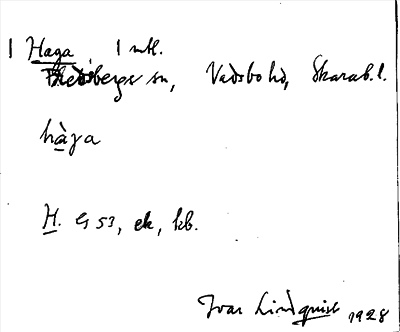 1 Haga 1 mtl.
Fredsbergs sn, Vadsbo hd, Skarab. l.
hàga
H. G 53, ek, kb.
Ivar Lindquist 1928